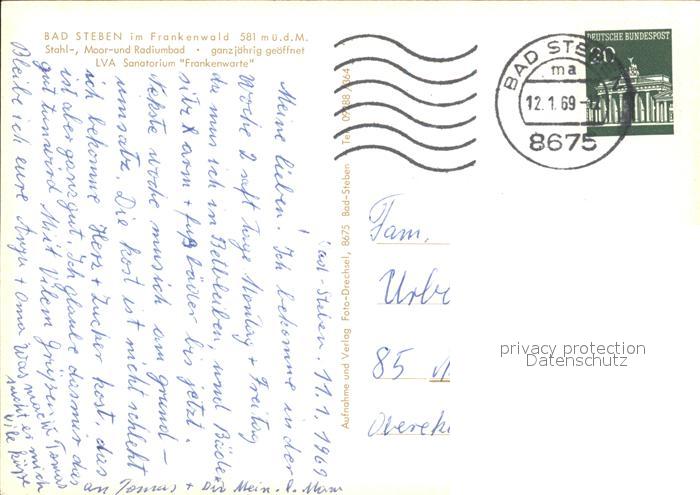 BAD STEBEN im Frankenwald 581 m ü.d.M.
Stahl-, Moor-und Radiumbad · ganzjährig geöffnet
LVA Sanatorium "Frankenwarte"
Bad-Steben. 11.1.1969
Meine lieben! Ich bekomme in der
Woche 2 saft tage Montag + Freitag
da mus ich in Bettbleiben, und Bäder
sitz arm + fußbäder bis jetzt.
Nekste woche mus ich am grund-
umsatz. Die kost ist nicht schlecht
ich bekomme Herz + Zucker kost, das
ist aber ganz gut. Ich glaube das mir das
gut tun wird Mit Vilem Grüßen
Bleibe ich eure + oma Was macht Tomas
sucht er mich
vile küsse
an Tomas + Dir Mein. l.
Aufnahme und Verlag Foto-Drechsel, 8675 Bad-Steben Tel. 09288/364
BAD STEBEN
ma
12.1.69
8675
DEUTSCHE BUNDESPOST
20
Fam.
Urbe
85
Oberek
privacy protection
Datenschutz